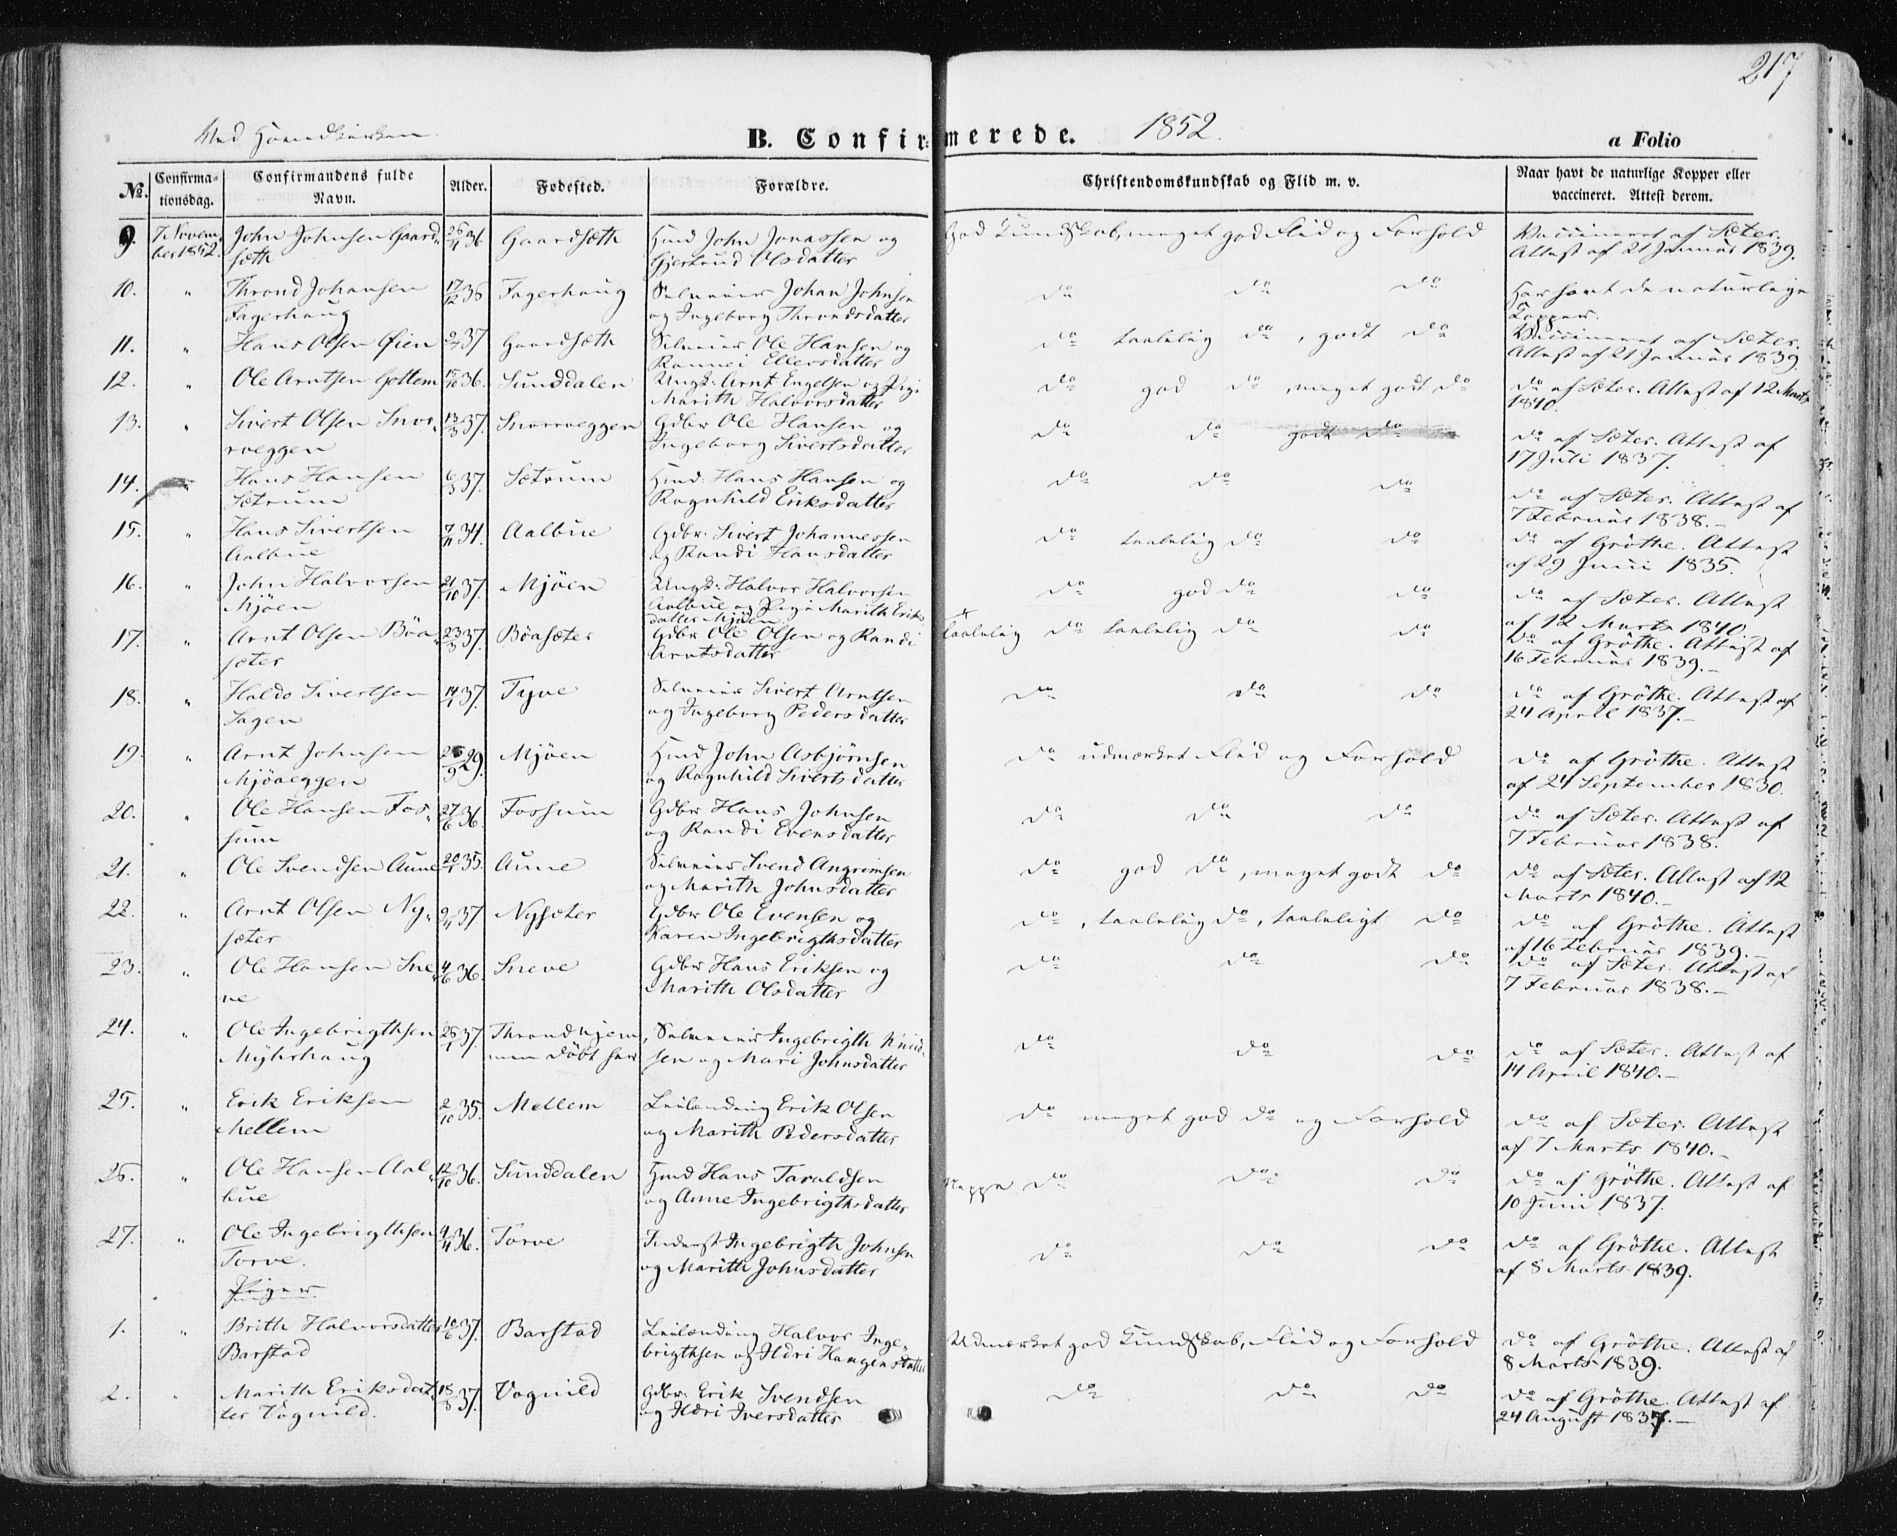 217
Ved Hovedkirken B. Confirmerede. 1852. a Folio
No. Confirmationsdag. Confirmandens fulde Navn. Alder. Fødested. Forældre. Christendomskundskab og Flid m. v. Naar havt de naturlige Kopper eller vaccineret. Attest derom.
9. 7 Novem- John Johnsen Gaard- 26/4 36 Gaardsæth Hmd John Jonassen og God Kundskab, meget god Flid og Forhold Vaccineret af Sæter.
ber 1852. sæth Gjertrud Olsdatter Attest af 21 Januar 1839.
10. " Thrond Johansen 17/12 36 Fagerhaug Selveier Johan Johnsen do do do Har havt de naturlige
Fagerhaug og Ingeborg Throndsdatter Kopper.
11. " Hans Olsen Øien 2/4 37 Gaardsæth Selveier Ole Hansen og do taalelig do, godt do Vaccineret af Sæter.
Rannei Ellevsdatter Attest af 21 Januar 1839.
12. " Ole Arntsen Gottem 15/10 36. Sunddalen Ungk. Arnt Engelsen og Pige do god do, meget godt do do af Sæter. Attest af 12 Marts
Marith Halvorsdatter 1840.
13. " Sivert Olsen Snov- 13/3 37. Snovveggen Gdbr Ole Hansen og do do godt do do af Sæter. Attest af
veggen Ingeborg Sivertsdatter 17 Juli 1837.
14. " Hans Hansen 6/3 37. Sætrum Hmd. Hans Hansen og do do do do af Sæter. Attest af
Sætrum Ragnhild Eriksdatter 7 Februar 1838.-
15. " Hans Sivertsen 7/11 34. Aalbue Gdbr. Sivert Johannessen do taalelig do do do af Gröthe. Attest
Aalbue og Randi Hansdatter af 29 Juni 1835.
16. " John Halvorsen 21/10 37. Mjöen Ungk. Halvor Halvorsen do god do do do af Sæter. Attest
Mjöen Aalbue og Pige Marith Eriks-
datter Mjöen af 12 Marts 1840
17. " Arnt Olsen Böa- 23/3 37. Böasæter Gdbr Ole Olsen og Randi taalelig do taalelig do do do af Gröthe. Attest af
sæter Arntsdatter 16 Februar 1839.-
18. " Haldo Sivertsen 14/1 37. Tyve Selveier Sivert Arntsen do do do do af Gröthe. Attest af
Sagen og Ingeborg Pedersdatter 24 April 1837.-
19. " Arnt Johnsen 26/9 29. Mjöen Hmd John Asbjørnsen do udmærket Flid og Forhold do af Gröthe. Attest
Mjöaeggen og Ragnhild Sivertsdatter af 24 September 1830.
20. " Ole Hansen Fos- 27/6 36. Fossum Gdbr Hans Johnsen do do do do af Sæter. Attest af
sum og Randi Evensdatter 7 Februar 1838.
21. " Ole Svendsen Aune 20/1 35. Aune Selveier Svend Angrimsen do god do, meget godt do do af Sæter. Attest af 12
og Marith Johnsdatter Marts 1840.-
22. " Arnt Olsen Ny- 2/4 37 Nysæter Gdbr Ole Evensen og do, taalelig do, taaleligt do do af Gröthe. Attest
sæter Karen Ingebrigthsdatter af 16 Februar 1839.-
23. " Ole Hansen Sne- 4/6 36. Sneve Gdbr Hans Eriksen og do do do do af Sæter. Attest af
ve Marith Olsdatter 7 Februar 1838.-
24. " Ole Ingebrigthsen 28/1 37. Throndhjem Selveier Ingebrigth Knud- do do do do af Sæter. Attest af
Myhrhaug men döbt her sen og Mari Johnsdatter 14 April 1840.-
25. " Erik Eriksen 2/10 35. Mellem Leilænding Erik Olsen do meget god do og Forhold do af Sæter. Attest
Mellem og Marith Pedersdatter af 7 Marts 1840.-
26. " Ole Hansen Aal- 12/10 36. Sunddalen Hmd Hans Taraldsen Neppe do do do do af Gröthe. Attest af
bue og Anne Ingebrigthsdatter 10 Juni 1837.
27. " Ole Ingebrigthsen 4/4 36. Torve Inderst Ingebrigth Johnsen do do do do af Gröthe. Attest
Torve. og Marith Johnsdatter af 8 Marts 1839.
Piger.
1. " Brith Halvorsdatter 10/6 37. Barstad Leilænding Halvor Inge- Udmærket god Kundskab, Flid og Forhold do af Gröthe. Attest af
Barstad brigthsen og Ildri Haagensdatter 8 Marts 1839.
2. " Marith Eriksdat- 18/3 37. Vognild Gdbr. Erik Svendsen do do do do af Gröthe. Attest af
ter Vognild. og Ildri Iversdatter 24 August 1837.-